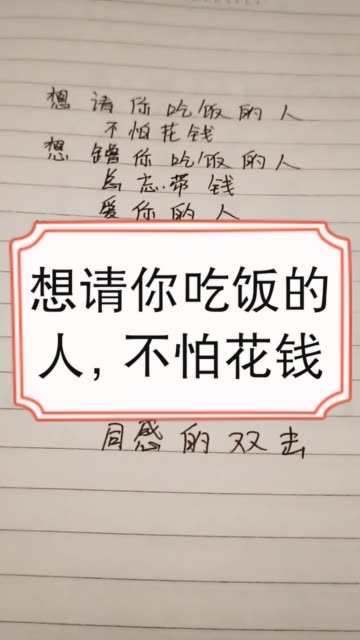 想请你吃饭的人
不怕花钱
想蹭你吃饭的人
忘带钱
爱你的人
想请你吃饭的
人，不怕花钱
同感的双击